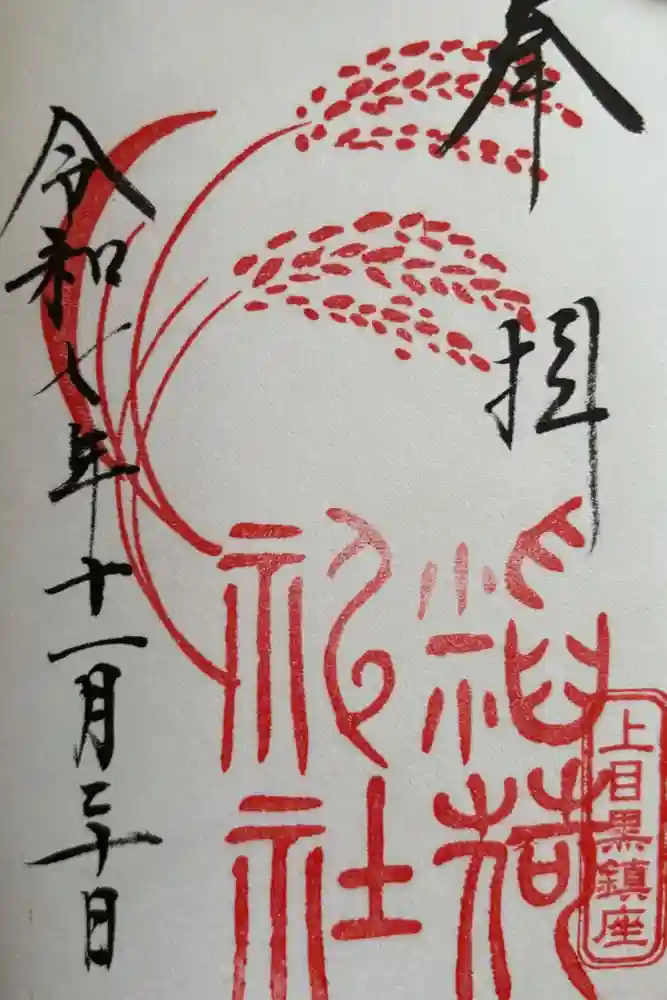 奉拝
稲荷神社
上目黒鎮座
令和七年十一月二十日